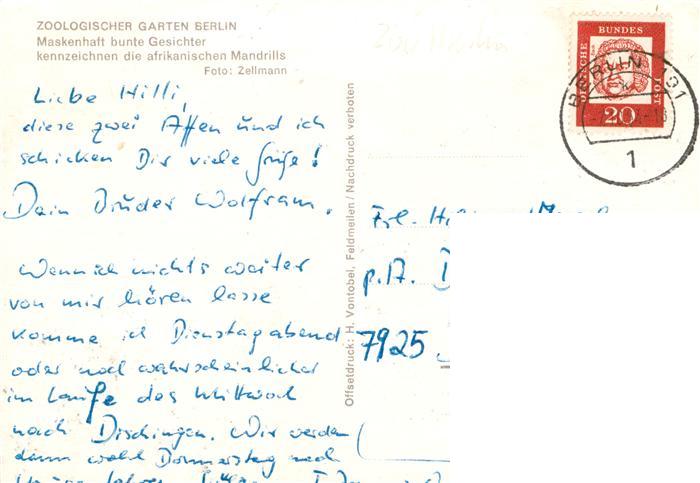 ZOOLOGISCHER GARTEN BERLIN
Maskenhaft bunte Gesichter
kennzeichnen die afrikanischen Mandrills
Foto: Zellmann
Liebe Hilli,
diese zwei Affen und ich
schicken Dir viele Grüße!
Dein Bruder Wolfram.
Wenn ich nichts weiter
von mir hören lasse
komme ich Dienstagabend
oder noch wahrscheinlicher
im Laufe des Mittwoch
nach Dischingen. Wir werden
dann wohl Donnerstag nach
Offsetdruck: H. Vontobel, Feldmeilen / Nachdruck verboten
DEUTSCHE BUNDESPOST
20
BERLIN 131
1
Frl.
p.A.
7925